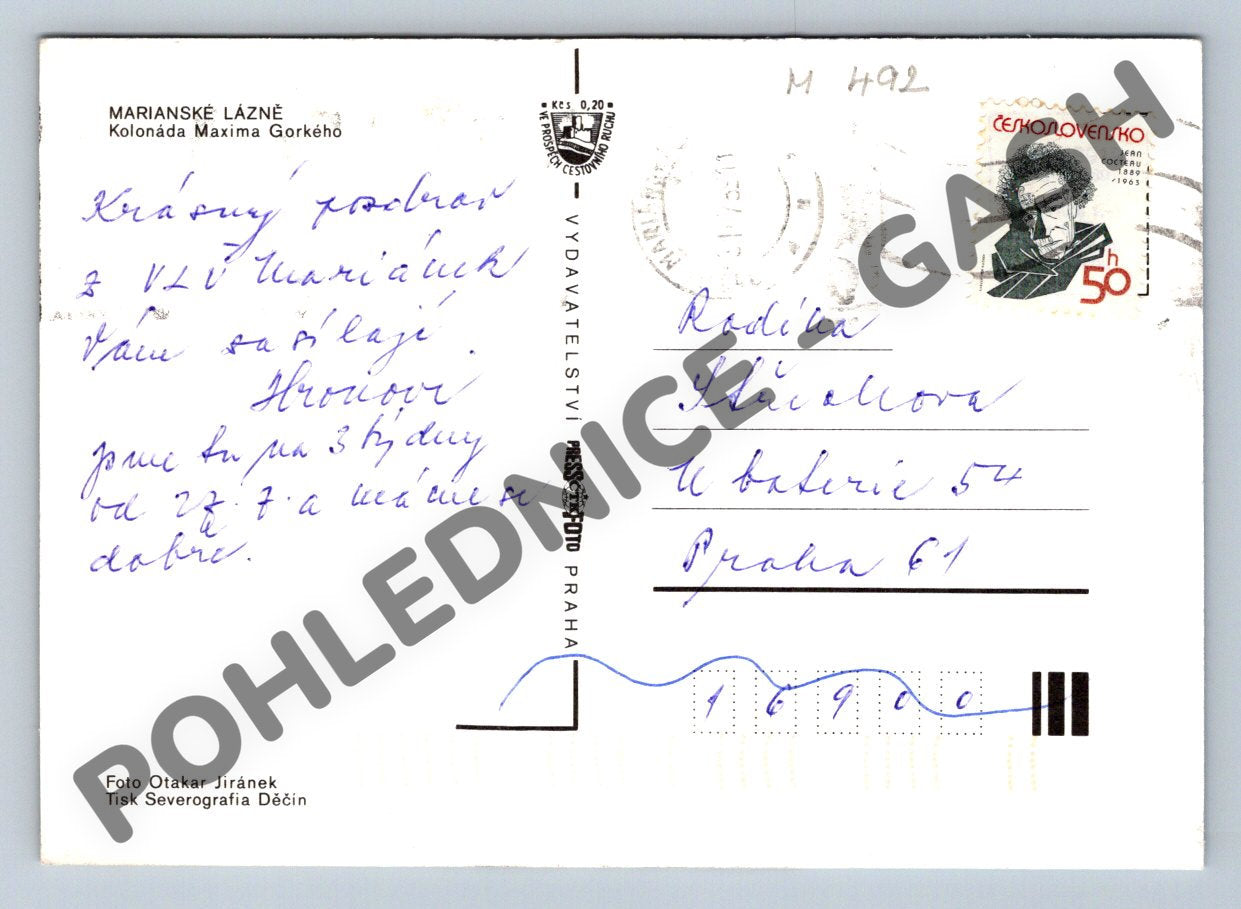 M 492
MARIANSKÉ LÁZNĚ
Kolonáda Maxima Gorkého
Krásný pozdrav
z VLÚ Mariánek
Vám zasílají
Hronovi
jsme tu na 3 týdny
od 27. 7. a máme se
dobře.
Foto Otakar Jiránek
Tisk Severografia Děčín
Kčs 0,20
VE PROSPĚCH CESTOVNÍHO RUCHU
VYDAVATELSTVÍ PRESSFOTO PRAHA
ČTK
ČESKOSLOVENSKO
JEAN
COCTEAU
1889
1963
50h
Rodina
U baterie 54
Praha 61
16900
POHLEDNICE - GASH